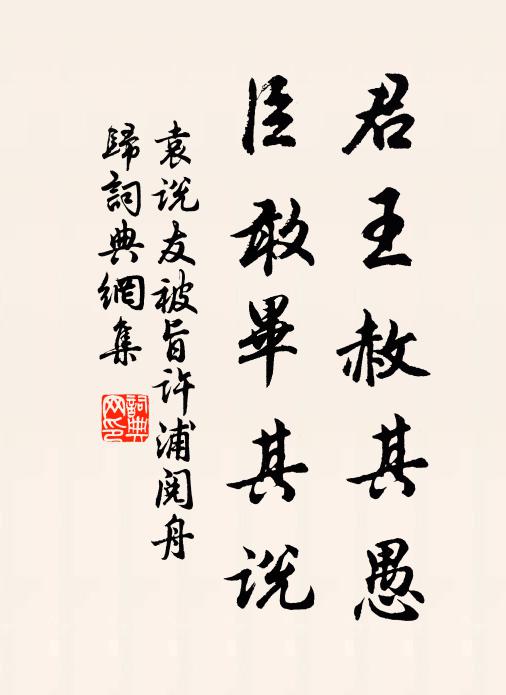 君王赦其愚
臣敢畢其说
袁说友被旨许浦阅舟
歸詞典網集
詞典
网印